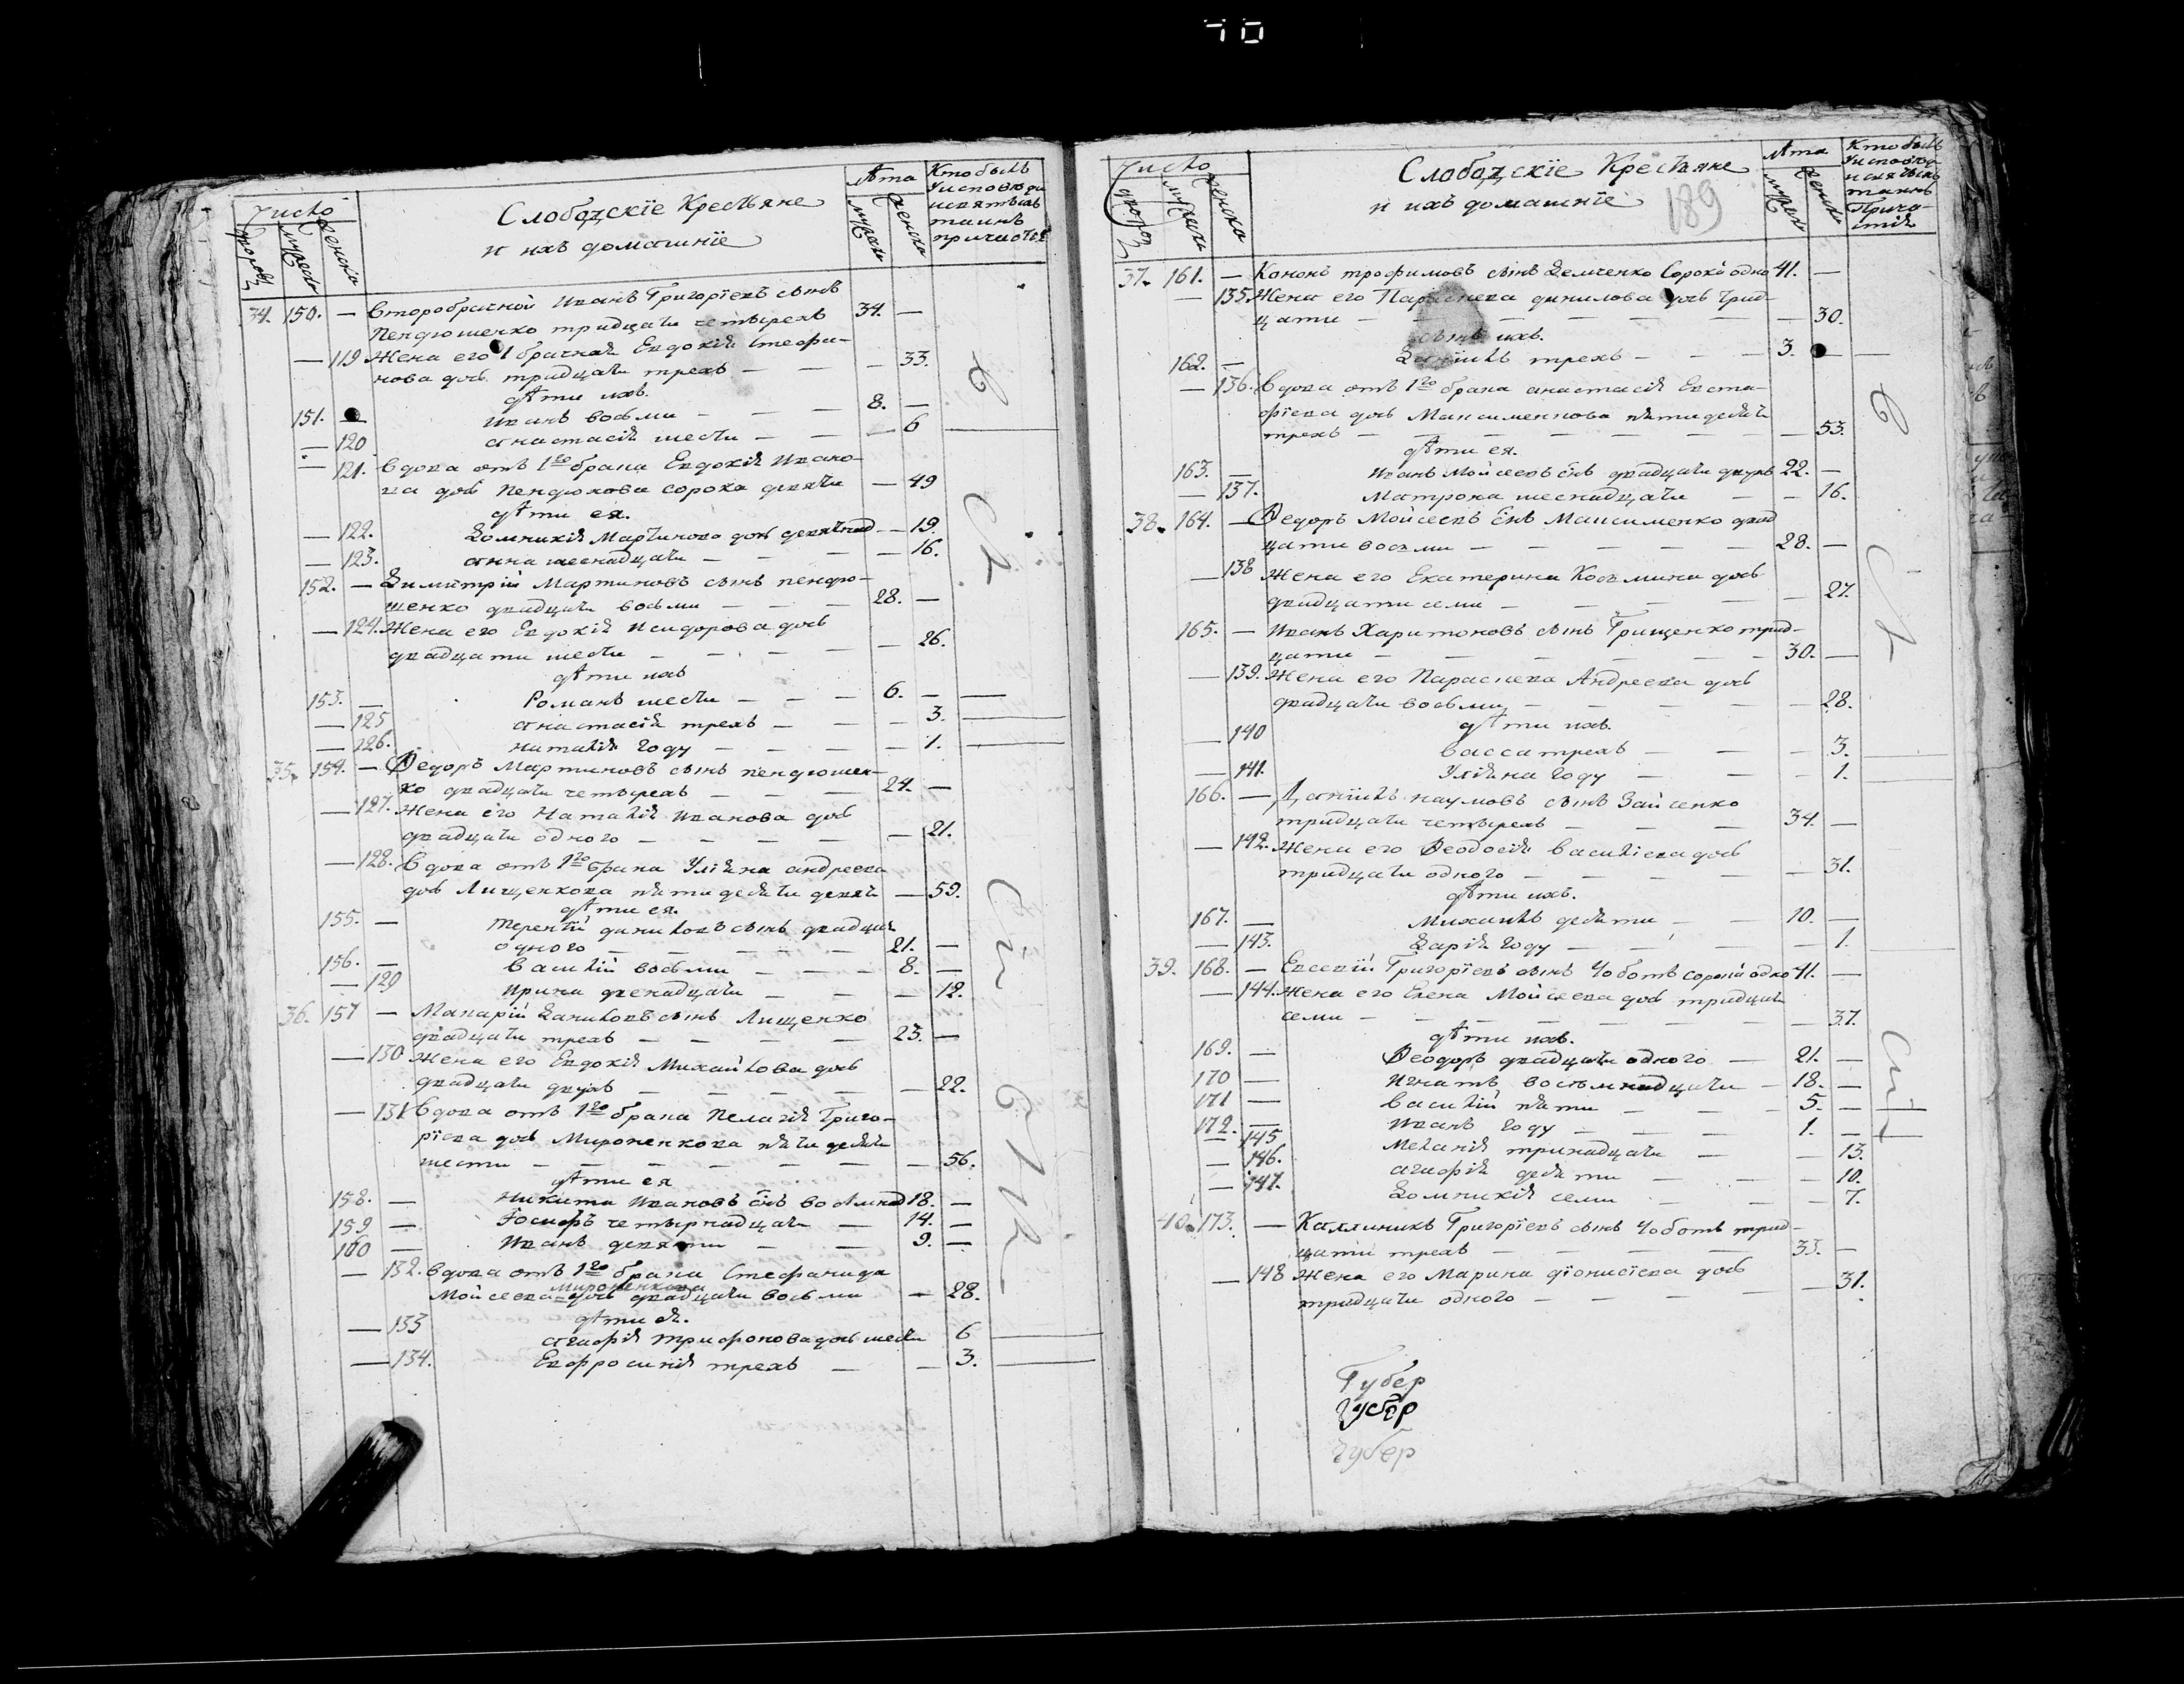 40
Число
дворов
мужеска
женска
Слободскіе Крестьяне
и ихъ домашніе
Лѣта
мужеска
женска
Кто былъ
у исповѣди
и святыхъ
таинъ
причастія
34. 150. — Второбрачной Иванъ Григоріевъ сынъ
Пендюшенко тридцати четырехъ 34. —
— 119 Жена его 1 брачная Евдокія Стефа-
нова дочь тридцати трехъ — — — 33.
дѣти ихъ.
151. — Иванъ восьми — — — 8. —
— 120 Анастасія шести — — — 6
— 121. Вдова отъ 1го брака Евдокія Ивано-
ва дочь Пендюхова сорока девяти — 49
дѣти ея.
— 122. Домникія Мартинова дочь девятнад — 19.
— 123. Анна шеснадцати — — — — 16.
152. — Димитрій Мартиновъ сынъ пендю-
шенко двадцати восьми — — — 28. —
— 124. Жена его Евдокія Исидорова дочь
двадцати шести — — — — — 26.
дѣти ихъ
153. — Романъ шести — — — 6. —
— 125 Анастасія трехъ — — — 3.
— 126. Наталія году — — — — 1.
35. 154. — Ѳедоръ Мартиновъ сынъ пендюшен-
ко двадцати четырехъ — — — 24. —
— 127. Жена его Наталія Иванова дочь
двадцати одного — — — — — 21.
— 128. Вдова отъ 1го брака Уліяна андреева
дочь Лищенкова пятидесяти девяти — 59.
дѣти ея.
155. — Терентій даниловъ сынъ двадцати
одного — — — — 21. —
156. — Василій восьми — — — 8. —
— 129 Ирина двенадцати — — — 12.
36. 157 — Макарій Даниловъ сынъ Лищенко
двадцати трехъ — — — — 23. —
— 130 Жена его Евдокія Михайлова дочь
двадцати двухъ — — — — — 22.
— 131 Вдова отъ 1го брака Пелагія Григо-
ріева дочь Мироненкова пятидесяти
шести — — — — — — — 56.
дѣти ея
158. — Никита Ивановъ снъ восемнад 18. —
159 — Іосифъ четырнадцати — 14. —
160 — Иванъ девяти — — 9. —
— 132. Вдова отъ 1го брака Стефанида
Мироненкова
Мойсеева дочь двадцати восьми — 28.
дѣти ея.
— 133 Агафія Трифонова дочь шести 6
— 134. Евфросинія трехъ — — 3.
Число
дворов
мужеска
женска
Слободскіе Крестьяне
и ихъ домашніе
189
Лѣта
мужеска
женска
Кто былъ
у исповѣди
и святыхъ
таинъ
Прича-
стія
37. 161. — Кононъ трофимовъ сынъ Демченко сорока одно 41. —
— 135 Жена его Параскева данилова дочь трид-
цати — — — — — — — 30.
сынъ ихъ.
162. — Даніилъ трехъ — — — 3. —
— 136. Вдова отъ 1го брака анастасія Евста-
фіева дочь Максименкова пятидесяти
трехъ — — — — — — — 53.
дѣти ея.
163. — Иванъ Мойсеевъ снъ двадцати двухъ 22. —
— 137. Матрона шеснадцати — — 16.
38. 164. — Ѳедоръ Мойсеевъ снъ Максименко двад
цати восьми — — — — — 28. —
— 138 Жена его Екатерина Козьмина дочь
двадцати семи — — — — — 27.
165. — Иванъ Харитоновъ сынъ Грищенко трид-
цати — — — — — — 30. —
— 139. Жена его Параскева Андреева дочь
двадцати восьми — — — — — 28.
дѣти ихъ.
— 140 Васса трехъ — — — 3.
— 141. Уліяна году — — — 1.
166. — Даніилъ наумовъ сынъ Зайченко
тридцати четырехъ — — — 34. —
— 142. Жена его Ѳеодосія Василіева дочь
тридцати одного — — — — — 31.
дѣти ихъ.
167. — Михаилъ десяти — — 10. —
— 143. Дарія году — — — — 1.
39. 168. — Евсевій Григоріевъ сынъ Чоботъ сорока одно 41. —
— 144. Жена его Елена Мойсеева дочь тридцати
семи — — — — — — — 37.
дѣти ихъ.
169. — Ѳеодоръ двадцати одного — 21. —
170 — Игнатъ восемнадцати — 18. —
171 — Василій пяти — — — 5. —
172. — Иванъ году — — — 1. —
— 145 Меланія тринадцати — — 13.
— 146. Агафія десяти — — — 10.
— 147. Домникія семи — — — 7.
40. 173. — Каллиникъ Григоріевъ сынъ Чоботъ трид-
цати трехъ — — — — — 33. —
— 148 Жена его Марина діонисіева дочь
тридцати одного — — — — — 31.
Губер
Губер
Губер